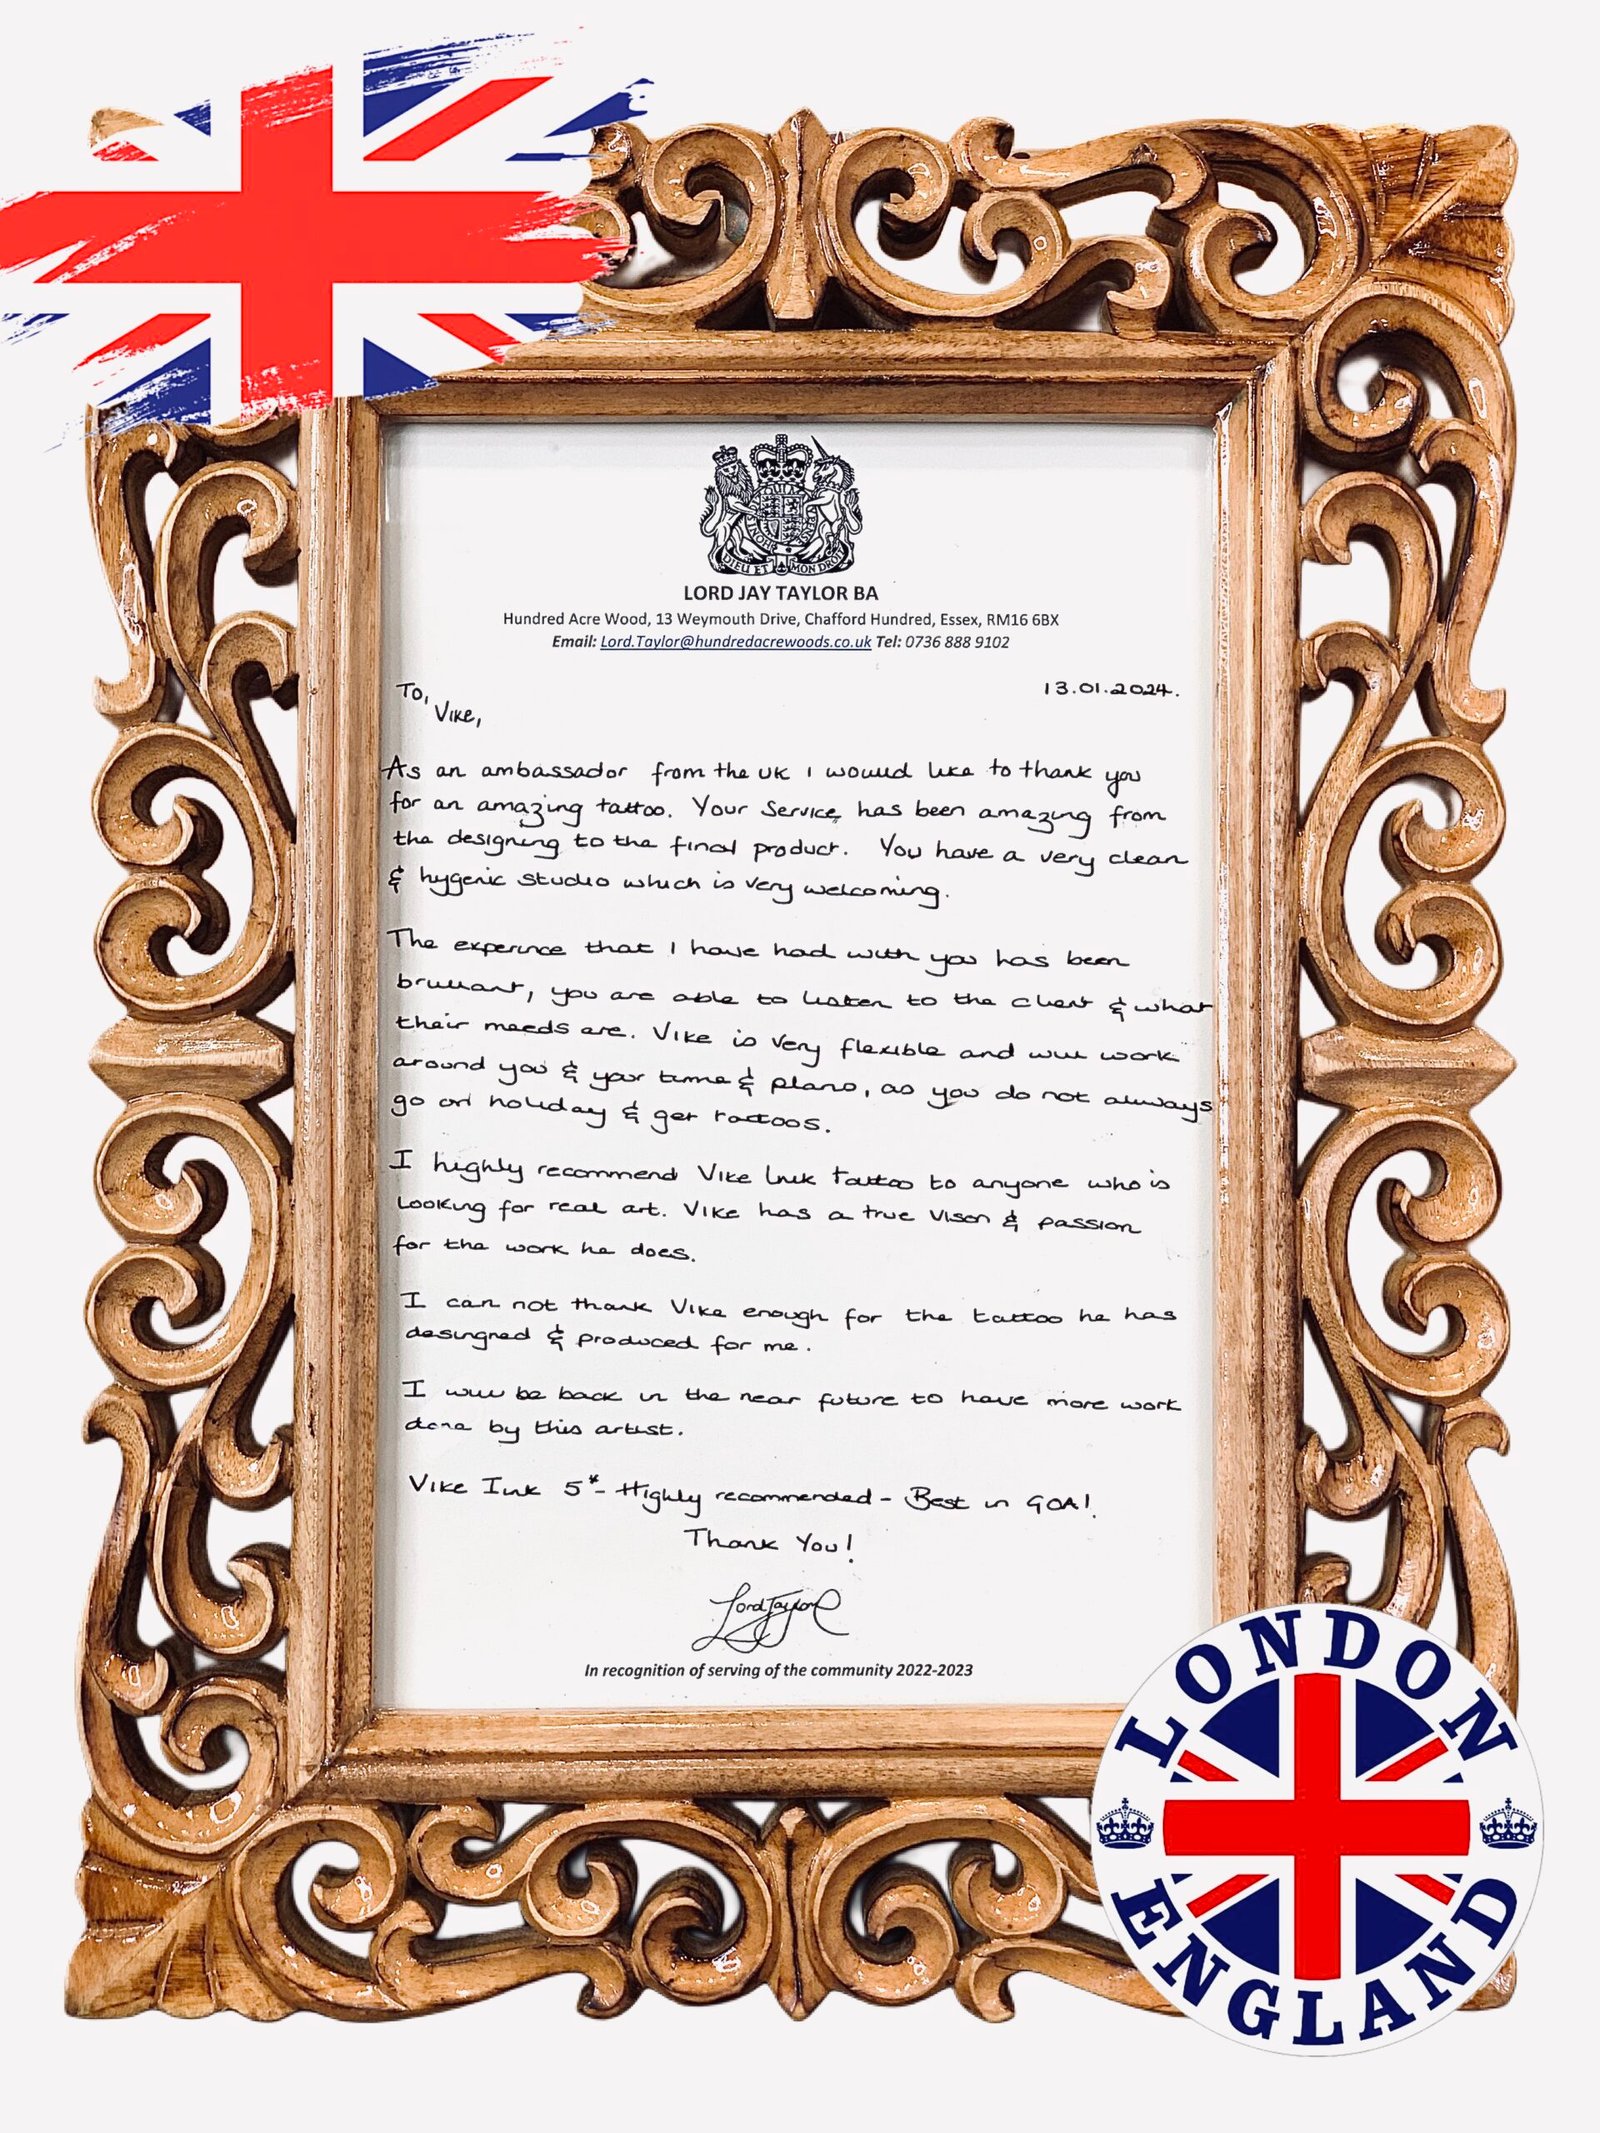 DIEU ET MON DROIT
LORD JAY TAYLOR BA
Hundred Acre Wood, 13 Weymouth Drive, Chafford Hundred, Essex, RM16 6BX
Email: Lord.Taylor@hundredacrewoods.co.uk Tel: 0736 888 9102
To, 13.01.2024.
Vike,
As an ambassador from the UK I would like to thank you
for an amazing tattoo. Your Service has been amazing from
the designing to the final product. You have a very clean
& hygenic studio which is very welcoming.
The experince that I have had with you has been
brilliant, you are able to listen to the client & what
their needs are. Vike is very flexible and will work
around you & your time & plans, as you do not always
go on holiday & get tattoos.
I highly recommend Vike Ink tattoo to anyone who is
looking for real art. Vike has a true vison & passion
for the work he does.
I can not thank Vike enough for the tattoo he has
desingned & produced for me.
I will be back in the near future to have more work
done by this artist.
Vike Ink 5* - Highly recommended - Best in GOA!
Thank You!
Lord Taylor
In recognition of serving of the community 2022-2023
LONDON
ENGLAND